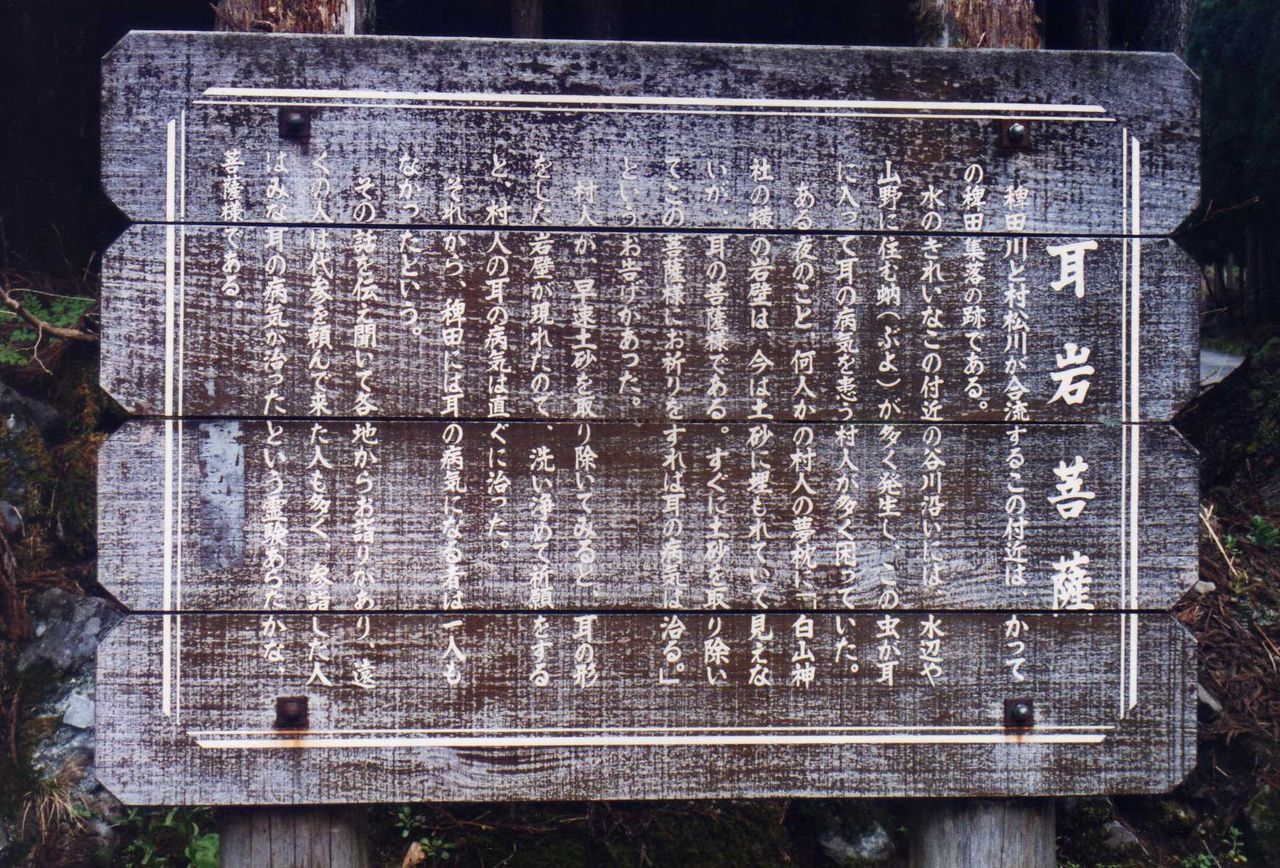 耳岩菩薩
稗田川と村松川が合流するこの付近は、かつて
の稗田集落の跡である。
水のきれいなこの付近の谷川沿いには、水辺や
山野に住む蚋(ぶよ)が多く発生し、この虫が耳
に入って耳の病気を患う村人が多く困っていた。
ある夜のこと、何人かの村人の夢枕に「白山神
社の横の岩壁は、今は土砂に埋もれていて見えな
いが、耳の菩薩様である。すぐに土砂を取り除い
てこの菩薩様にお祈りをすれば耳の病気は治る。」
というお告げがあった。
村人が、早速土砂を取り除いてみると、耳の形
をした岩屋が現れたので、洗い浄めて祈願をする
と、村人の耳の病気は直ぐに治った。
それから、稗田には耳の病気になる者は一人も
なかったという。
その話を伝え聞いて各地からお詣りがあり、遠
くの人は代参を頼んで来た人も多く、参詣した人
はみな耳の病気が治ったという霊験あらたかな、
菩薩様である。